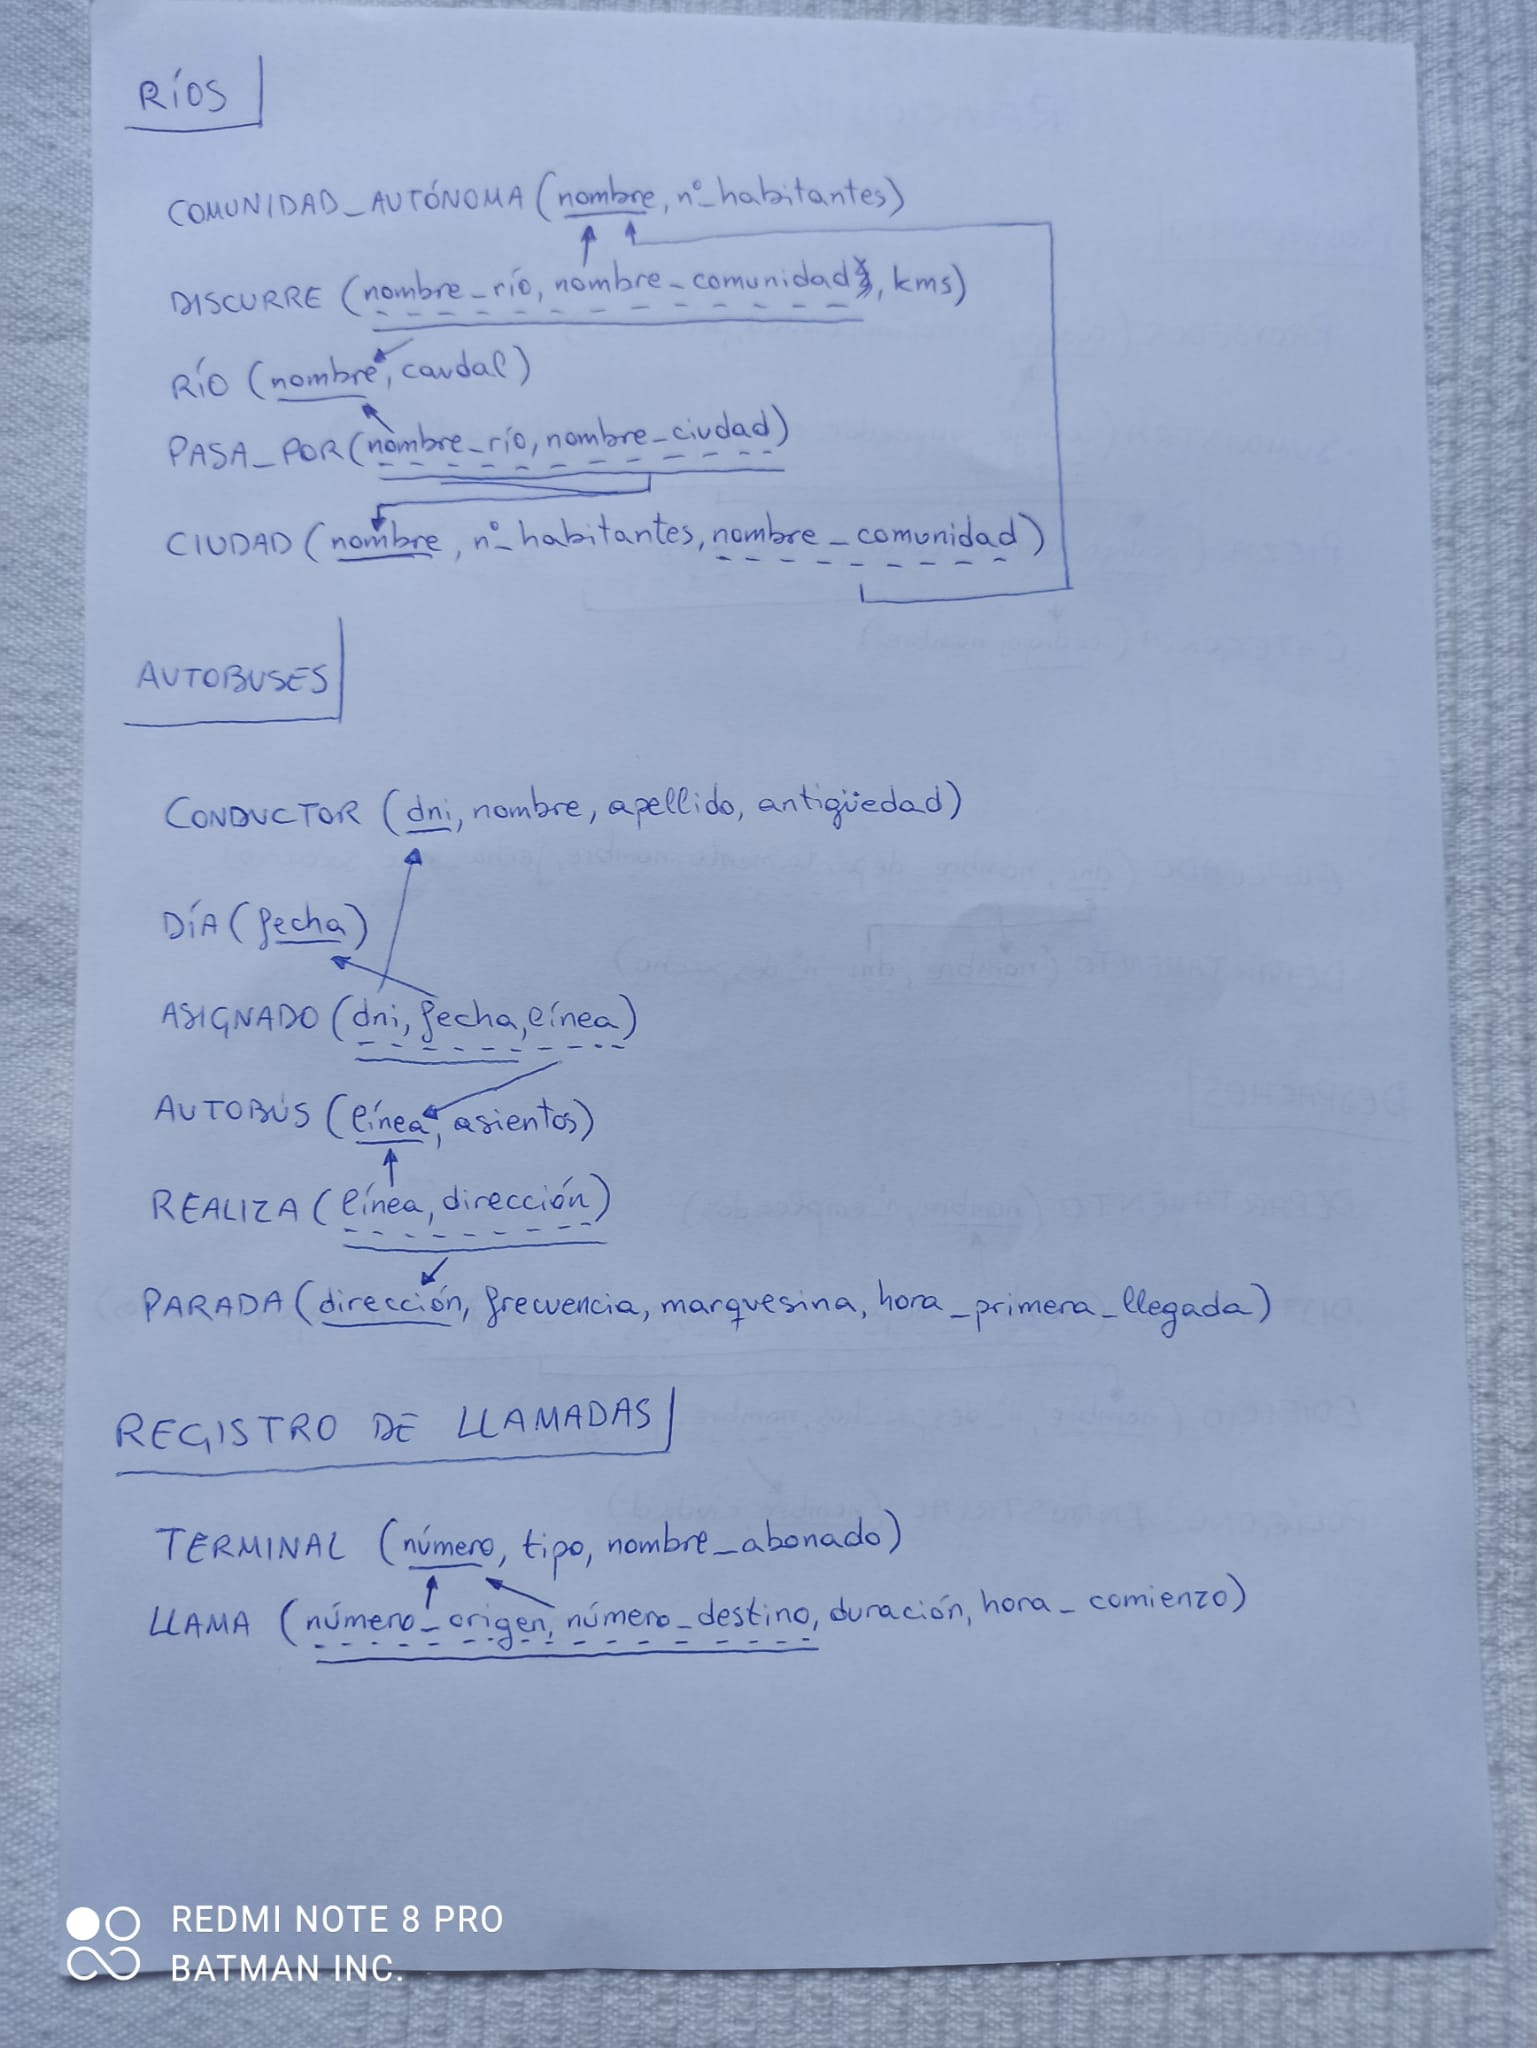 RÍOS
COMUNIDAD_AUTÓNOMA (nombre, nº_habitantes)
DISCURRE (nombre_río, nombre_comunidad, kms)
RÍO (nombre, caudal)
PASA_POR (nombre_río, nombre_ciudad)
CIUDAD (nombre, nº_habitantes, nombre_comunidad)
AUTOBUSES
CONDUCTOR (dni, nombre, apellido, antigüedad)
DÍA (fecha)
ASIGNADO (dni, fecha, línea)
AUTOBÚS (línea, asientos)
REALIZA (línea, dirección)
PARADA (dirección, frecuencia, marquesina, hora_primera_llegada)
REGISTRO DE LLAMADAS
TERMINAL (número, tipo, nombre_abonado)
LLAMA (número_origen, número_destino, duración, hora_comienzo)
REDMI NOTE 8 PRO
BATMAN INC.